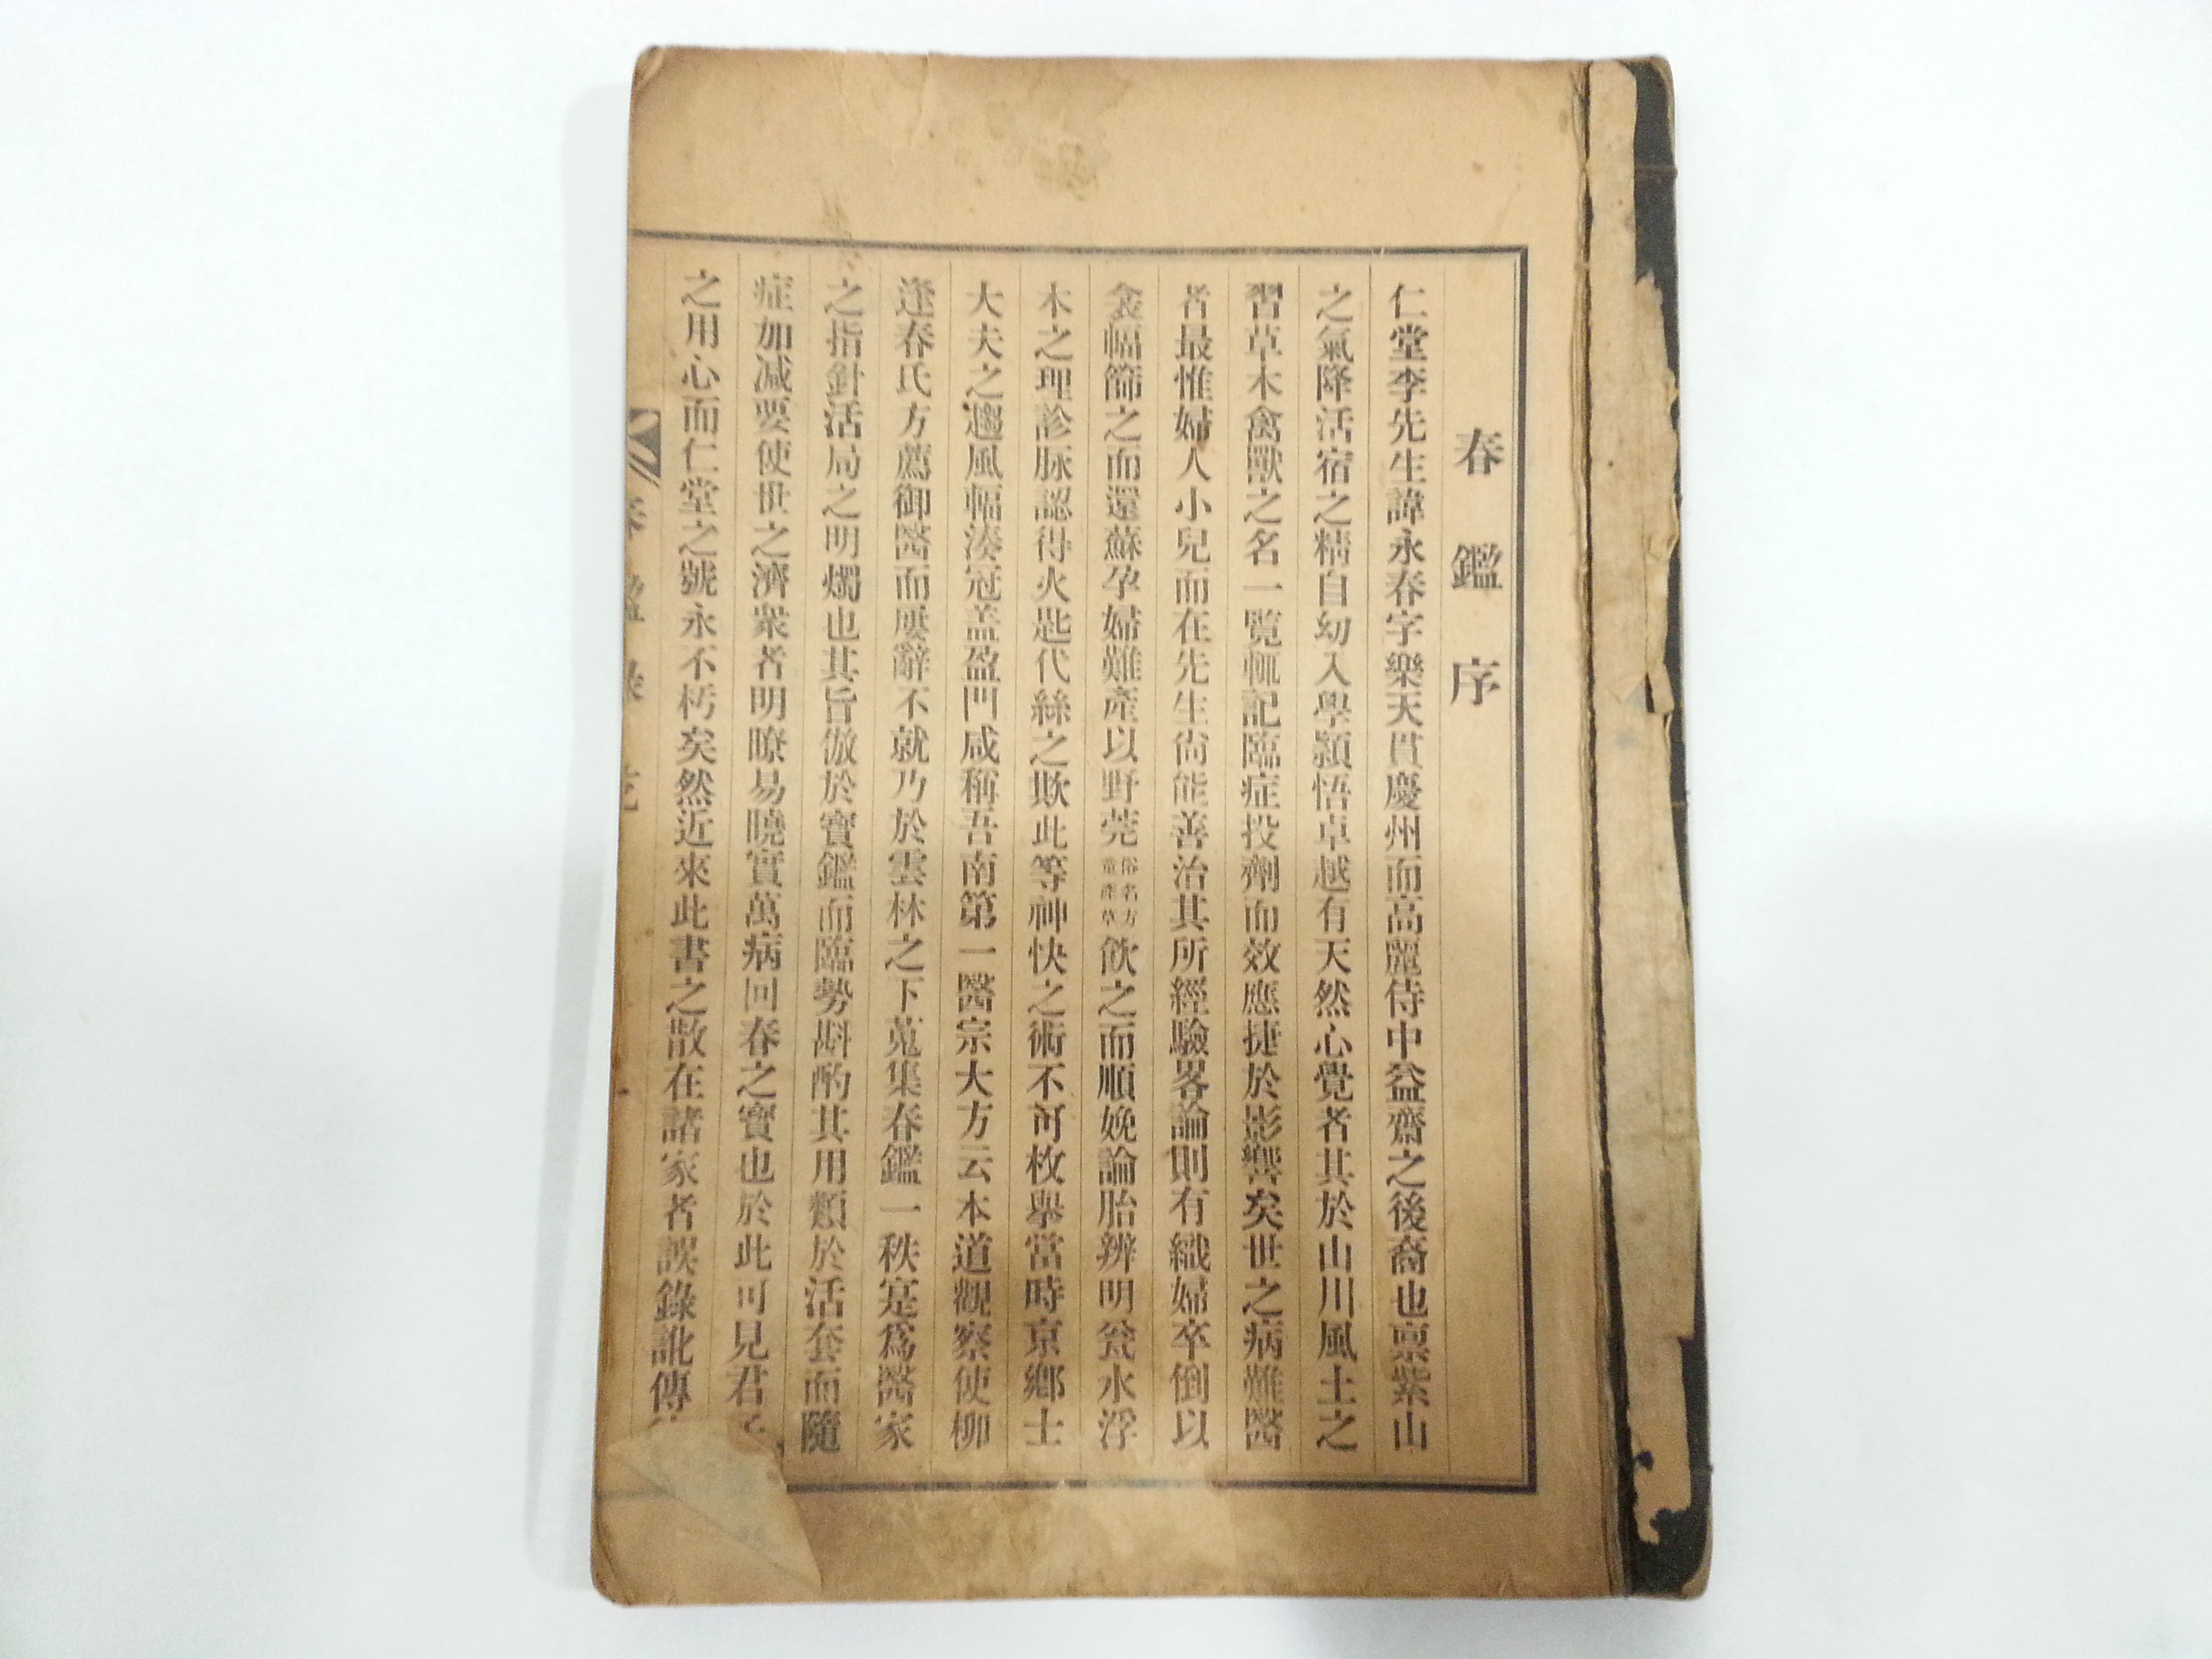 春鑑序
仁堂李先生諱永春字樂天貫慶州而高麗侍中益齋之後裔也禀紫山
之氣降活宿之精自幼入學穎悟卓越有天然心覺者其於山川風土之
習草木禽獸之名一覽輒記臨症投劑而效應捷於影響矣世之病難醫
者最惟婦人小兒而在先生尙能善治其所經驗畧論則有織婦卒倒以
衾幅篩之而還蘇孕婦難產以野莞俗名方童產草飲之而順娩論胎辨明瓮水浮
木之理診脉認得火匙代絲之欺此等神快之術不可枚擧當時京鄉士
大夫之趨風幅湊冠盖盈門咸稱吾南第一醫宗大方云本道觀察使柳
逢春氏方薦御醫而屢辭不就乃於雲林之下蒐集春鑑一秩寔爲醫家
之指針活局之明燭也其旨倣於寶鑑而臨勢斟酌其用類於活套而隨
症加减要使世之濟衆者明暸易曉實萬病回春之寶也於此可見君子
之用心而仁堂之號永不朽矣然近來此書之散在諸家者誤錄訛傳
春鑑錄